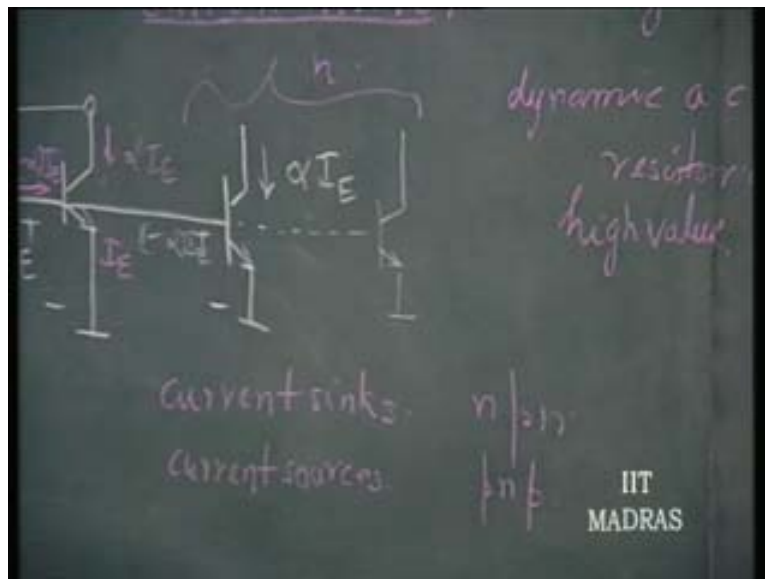 n
dynamic a c
αI_E
αI_E
resitor
high value.
I_E
I_E
current sinks. npn.
current sources. pnp.
IIT
MADRAS